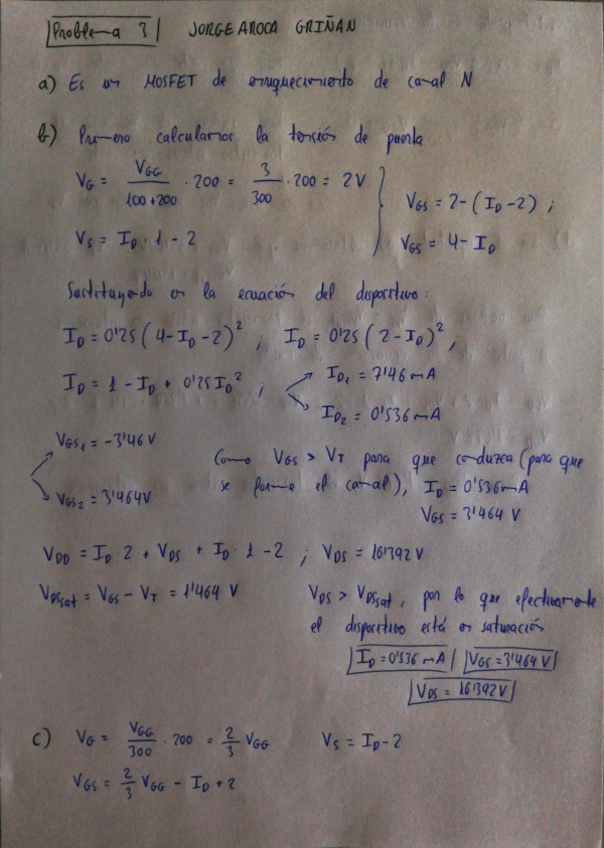 Problema 3 JORGE AROCA GRIÑÁN
a) Es un MOSFET de enriquecimiento de canal N
b) Primero calculamos la tensión de puerta
V_G = V_GG / (100+200) · 200 = 3/300 · 200 = 2 V
V_S = I_D · 1 - 2
V_GS = 2 - (I_D - 2) ;
V_GS = 4 - I_D
Sustituyendo en la ecuación del dispositivo:
I_D = 0'25 (4 - I_D - 2)² ; I_D = 0'25 (2 - I_D)² ;
I_D = 1 - I_D + 0'25 I_D² ; I_D1 = 7'46 mA
I_D2 = 0'536 mA
V_GS1 = -3'46 V
V_GS2 = 3'464 V
Como V_GS > V_T para que conduzca (para que
se forme el canal), I_D = 0'536 mA
V_GS = 3'464 V
V_DD = I_D · 2 + V_DS + I_D · 1 - 2 ; V_DS = 16'392 V
V_DSsat = V_GS - V_T = 1'464 V
V_DS > V_DSsat, por lo que efectivamente
el dispositivo está en saturación
I_D = 0'536 mA V_GS = 3'464 V
V_DS = 16'392 V
c) V_G = V_GG/300 · 200 = 2/3 V_GG V_S = I_D - 2
V_GS = 2/3 V_GG - I_D + 2